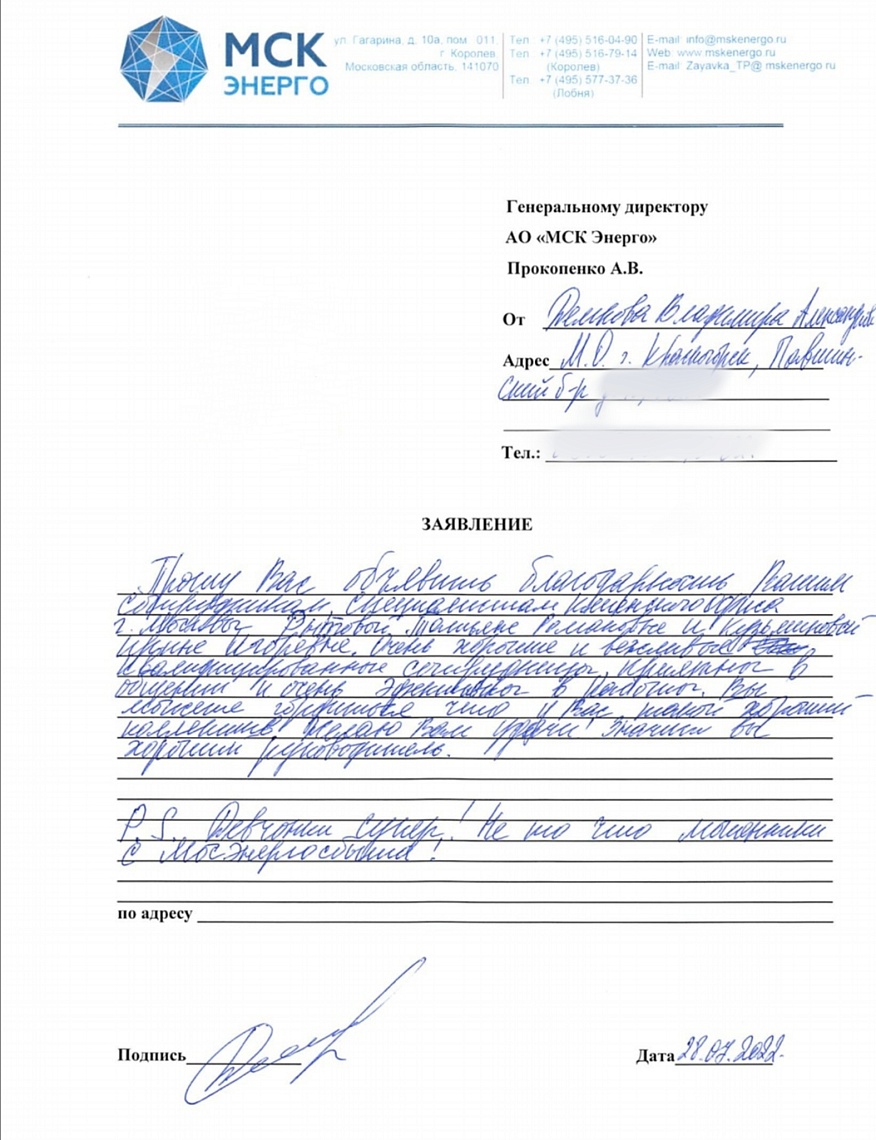 МСК
ЭНЕРГО
ул. Гагарина, д. 10а, пом. 011,
г. Королев,
Московская область, 141070
Тел.: +7 (495) 516-04-90
Тел.: +7 (495) 516-79-14
(Королев)
Тел.: +7 (495) 577-37-36
(Лобня)
E-mail: info@mskenergo.ru
Web: www.mskenergo.ru
E-mail: Zayavka_TP@ mskenergo.ru
Генеральному директору
АО «МСК Энерго»
Прокопенко А.В.
От Демкова Владимира
Адрес М.О. г. Красногорск, Павшин-
ский б-р
Тел.:
ЗАЯВЛЕНИЕ
Прошу Вас объявить благодарность Вашим
специалистам клиентского офиса
г. Москвы Татьяне Романовне и
Ирине Игоревне. Очень хорошие и вежливые
квалифицированные сотрудницы, приятног в
общении и очень в работе. Вы
можете гордиться что у Вас такой хороший
коллектив Желаю Вам удачи Значит вы
хороший руководитель.
P.S. Девчонки супер! Не то что мошенники
с МосЭнергосбыта!
по адресу
Подпись
Дата 28.07.2022.